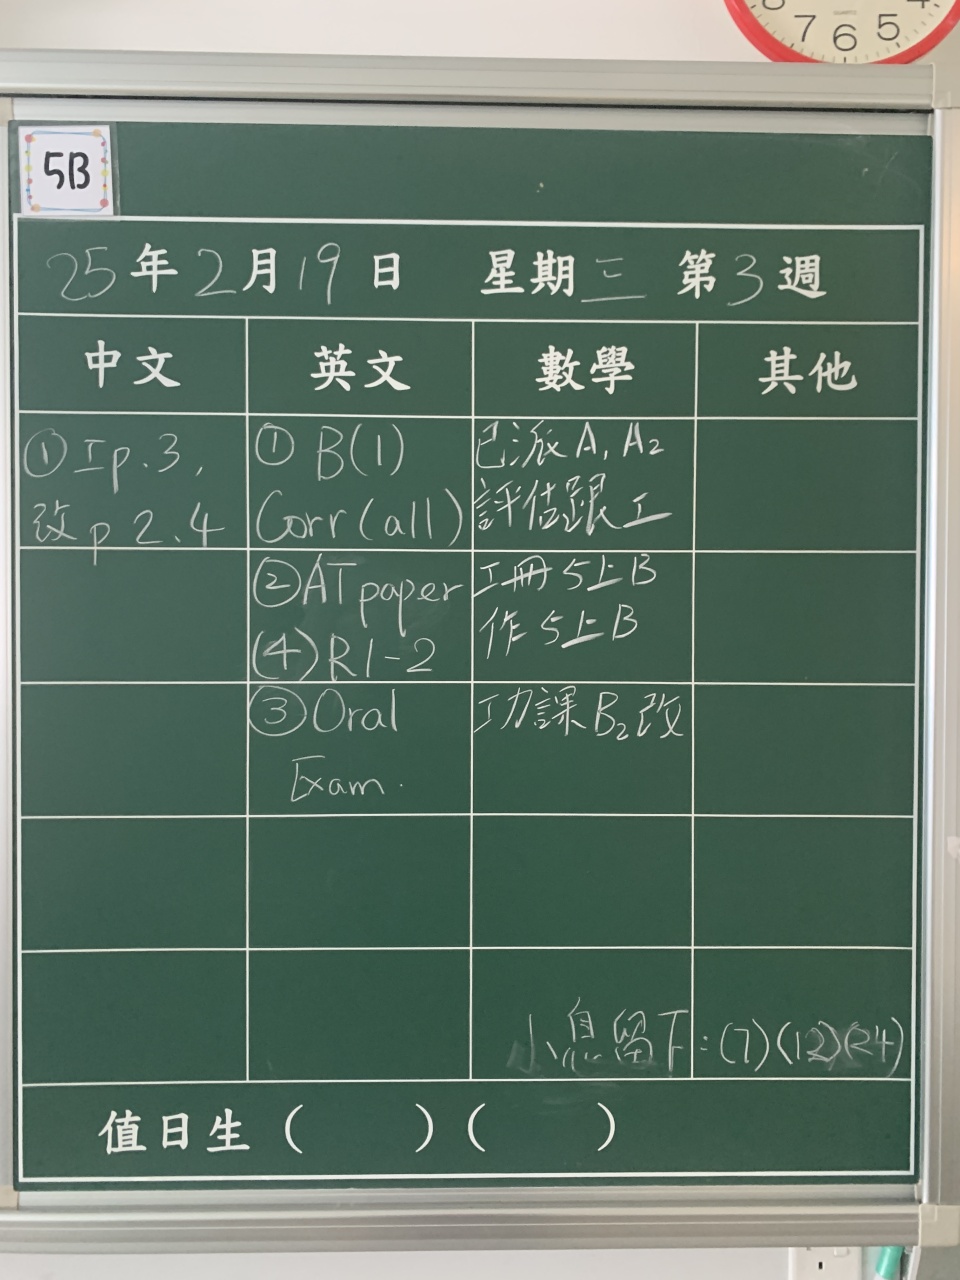 7 6 5
QUARTZ
5B
25年2月19日 星期三 第3週
中文 英文 數學 其他
①工p.3,
改p 2、4
① B(1)
Corr(all)
已派A1 A2
評估跟工
②AT paper
(4) R1-2
工冊5上B
作5上B
③Oral
Exam.
功課B2改
小息留下:(7)(12)(24)
值日生 ( ) ( )